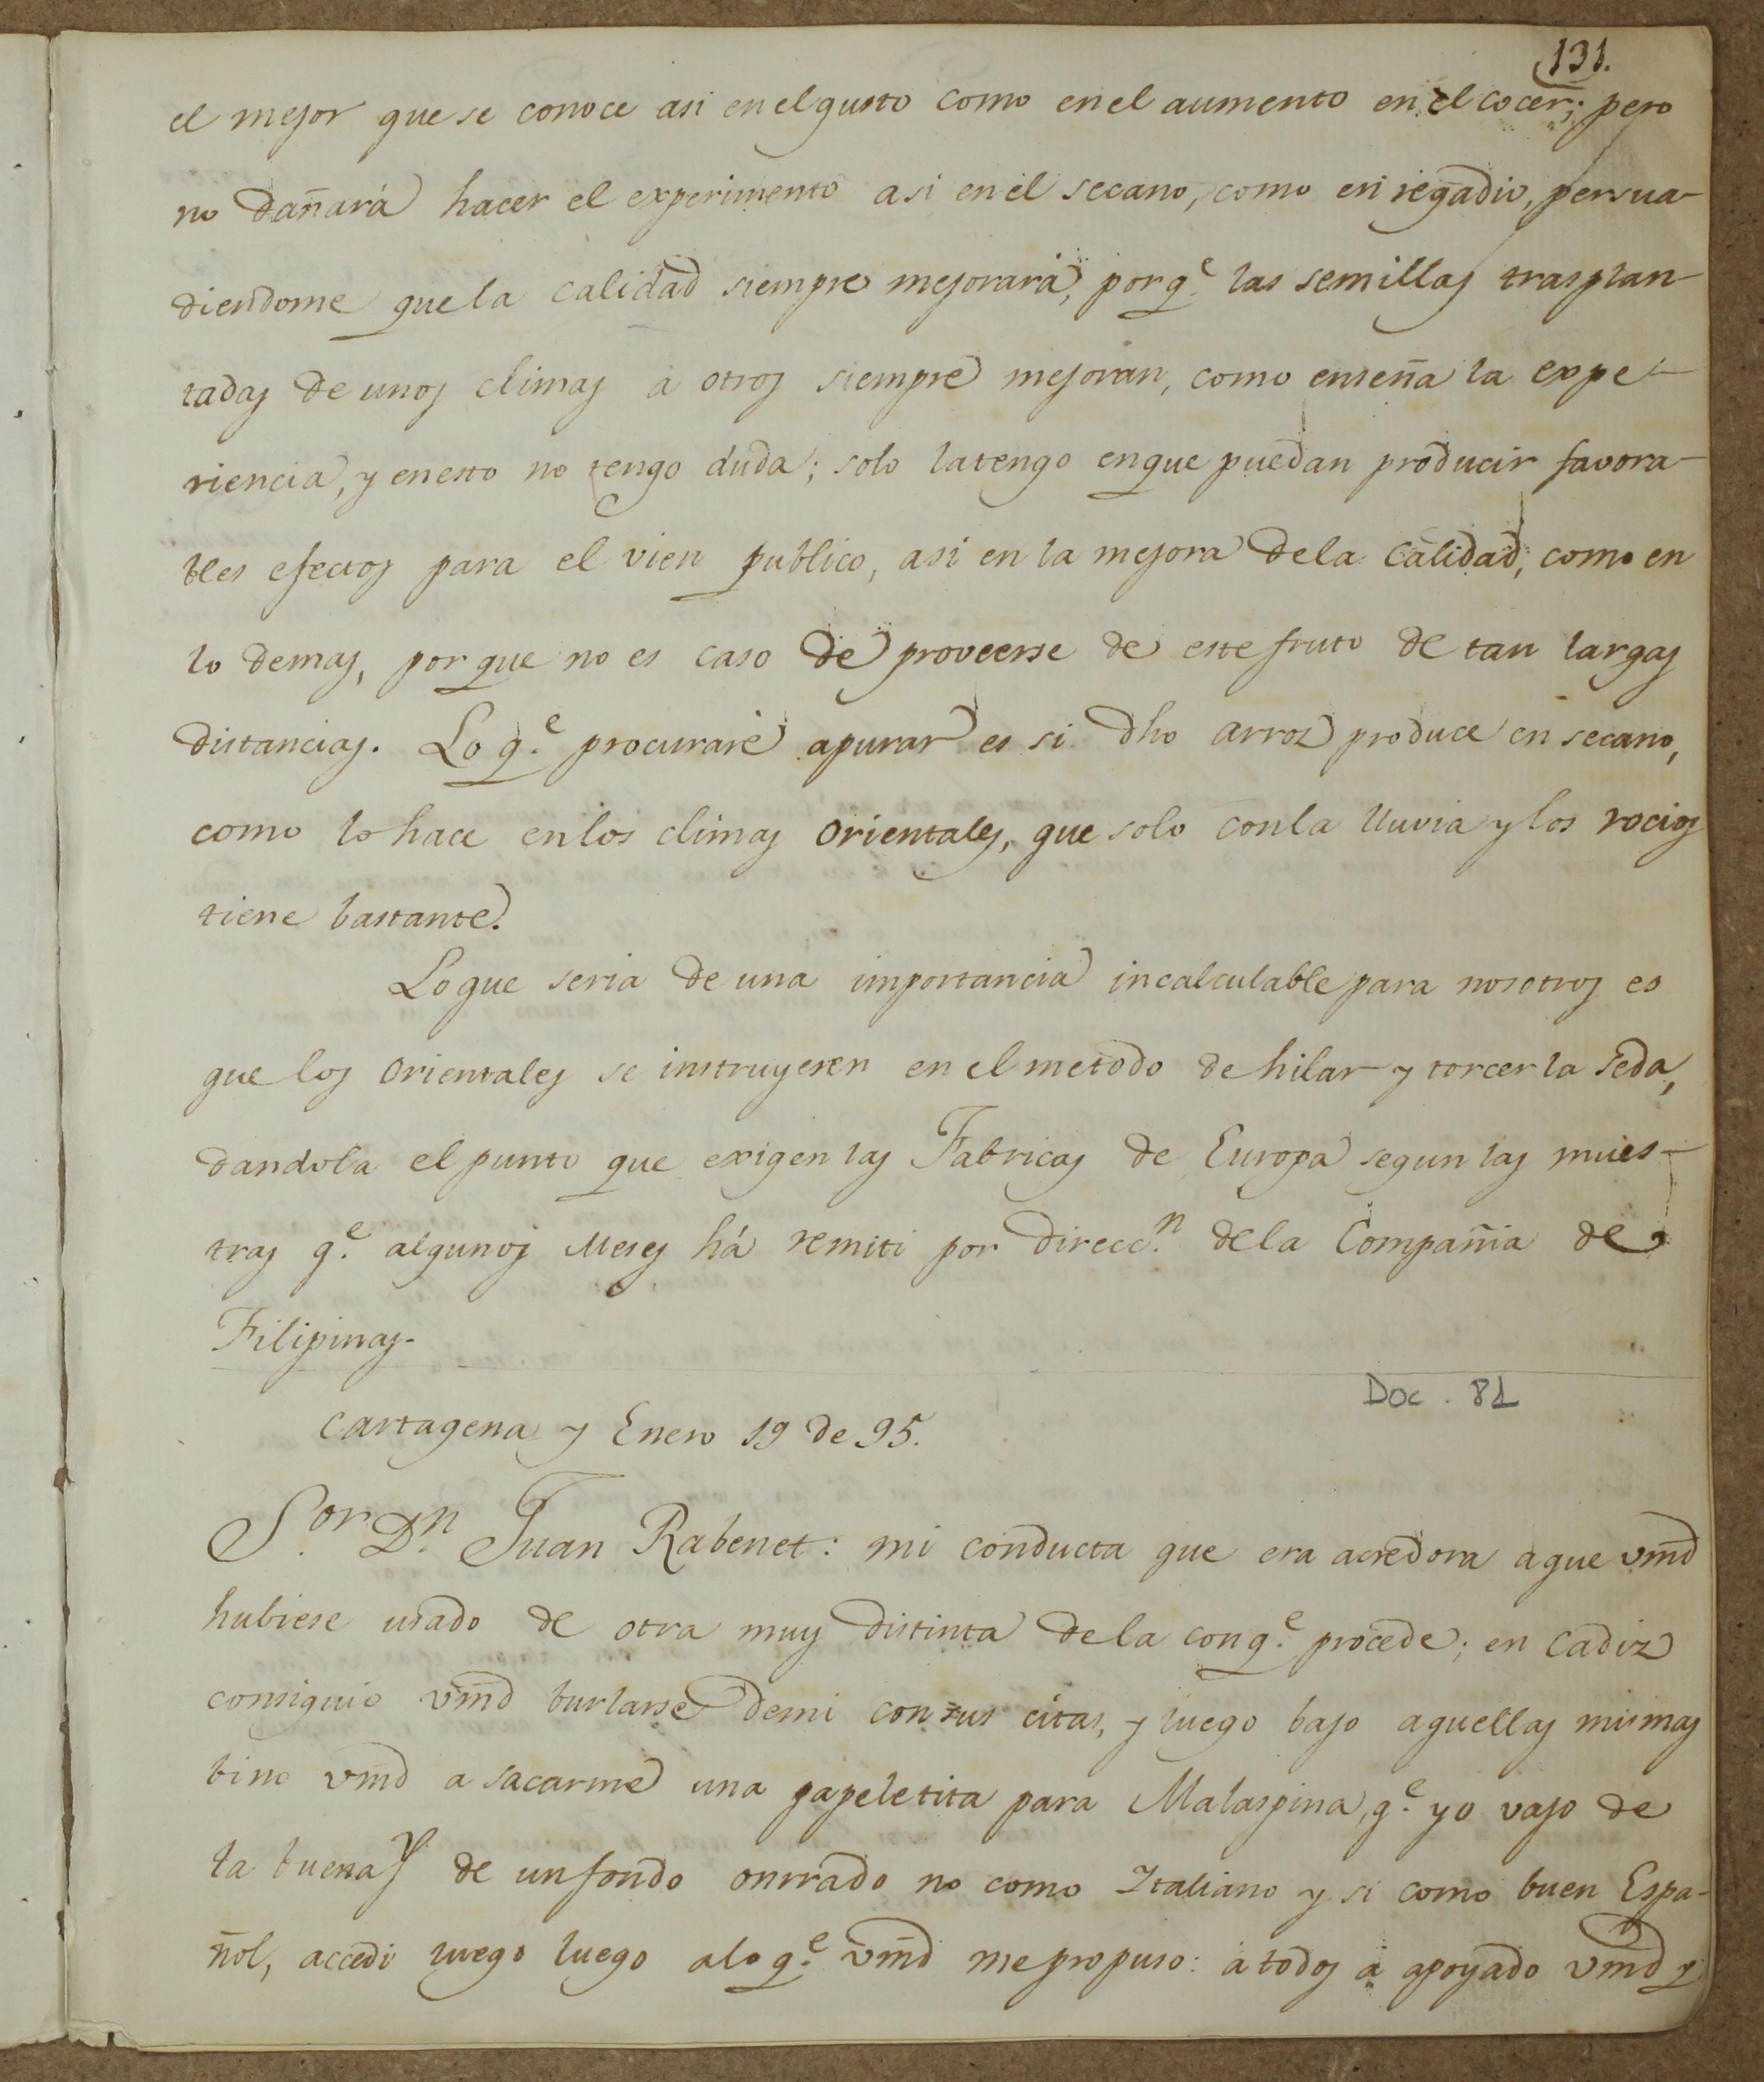 131.
el mejor que se conoce asi en el gusto como en el aumento en el cocer; pero
no dañará hacer el experimento asi en el secano, como en regadio, persua-
diendome que la calidad siempre mejorará, porq.e las semillas trasplan-
tadas de unos climas á otros siempre mejoran, como enseña la expe-
riencia, y en esto no tengo duda; solo la tengo en que puedan producir favora-
bles efectos para el vien publico, asi en la mejora de la calidad, como en
lo demas, por que no es caso de proveerse de este fruto de tan largas
distancias. Lo q.e procuraré apurar es si dho arroz produce en secano,
como lo hace en los climas orientales, que solo con la lluvia y los rocios
tiene bastante.
Lo que seria de una importancia incalculable para nosotros es
que los orientales se instruyesen en el metodo de hilar y torcer la seda,
dandola el punto que exigen las Fabricas de Europa segun las mues-
tras q.e algunos Meses há remiti por direcc.n de la Compañia de
Filipinas.
Doc. 81
Cartagena y Enero 19 de 95.
S.or D.n Juan Rabenet: mi conducta que era acredora a que vmd
hubiese usado de otra muy distinta de la con q.e procede; en Cadiz
consiguio vmd burlarse de mi con sus citas, y luego bajo aquellas mismas
bino vmd a sacarme una papeletita para Malaspina, q.e yo vajo de
la buena de un fondo onrrado no como Italiano y si como buen Espa-
ñol, accedi luego luego a lo q.e vmd me propuso: á todos á apoyado vmd y